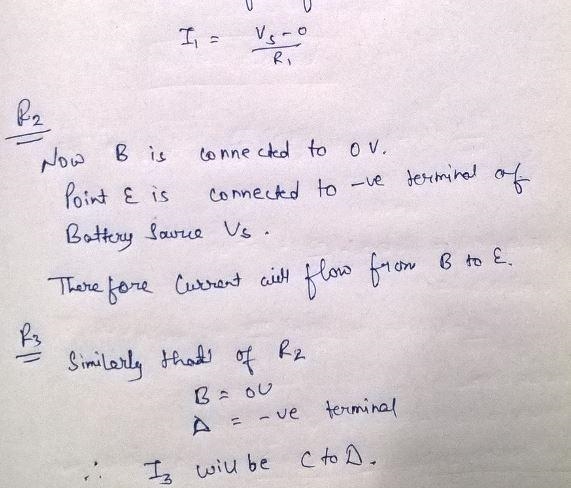 I₁ = Vs - 0
R₁
R₂
Now B is connected to 0 V.
Point E is connected to -ve terminal of
Battery Source Vs.
Therefore Current will flow from B to E.
R₃
Similarly that's of R₂
B = 0V
D = -ve terminal
∴ I₃ will be C to D.